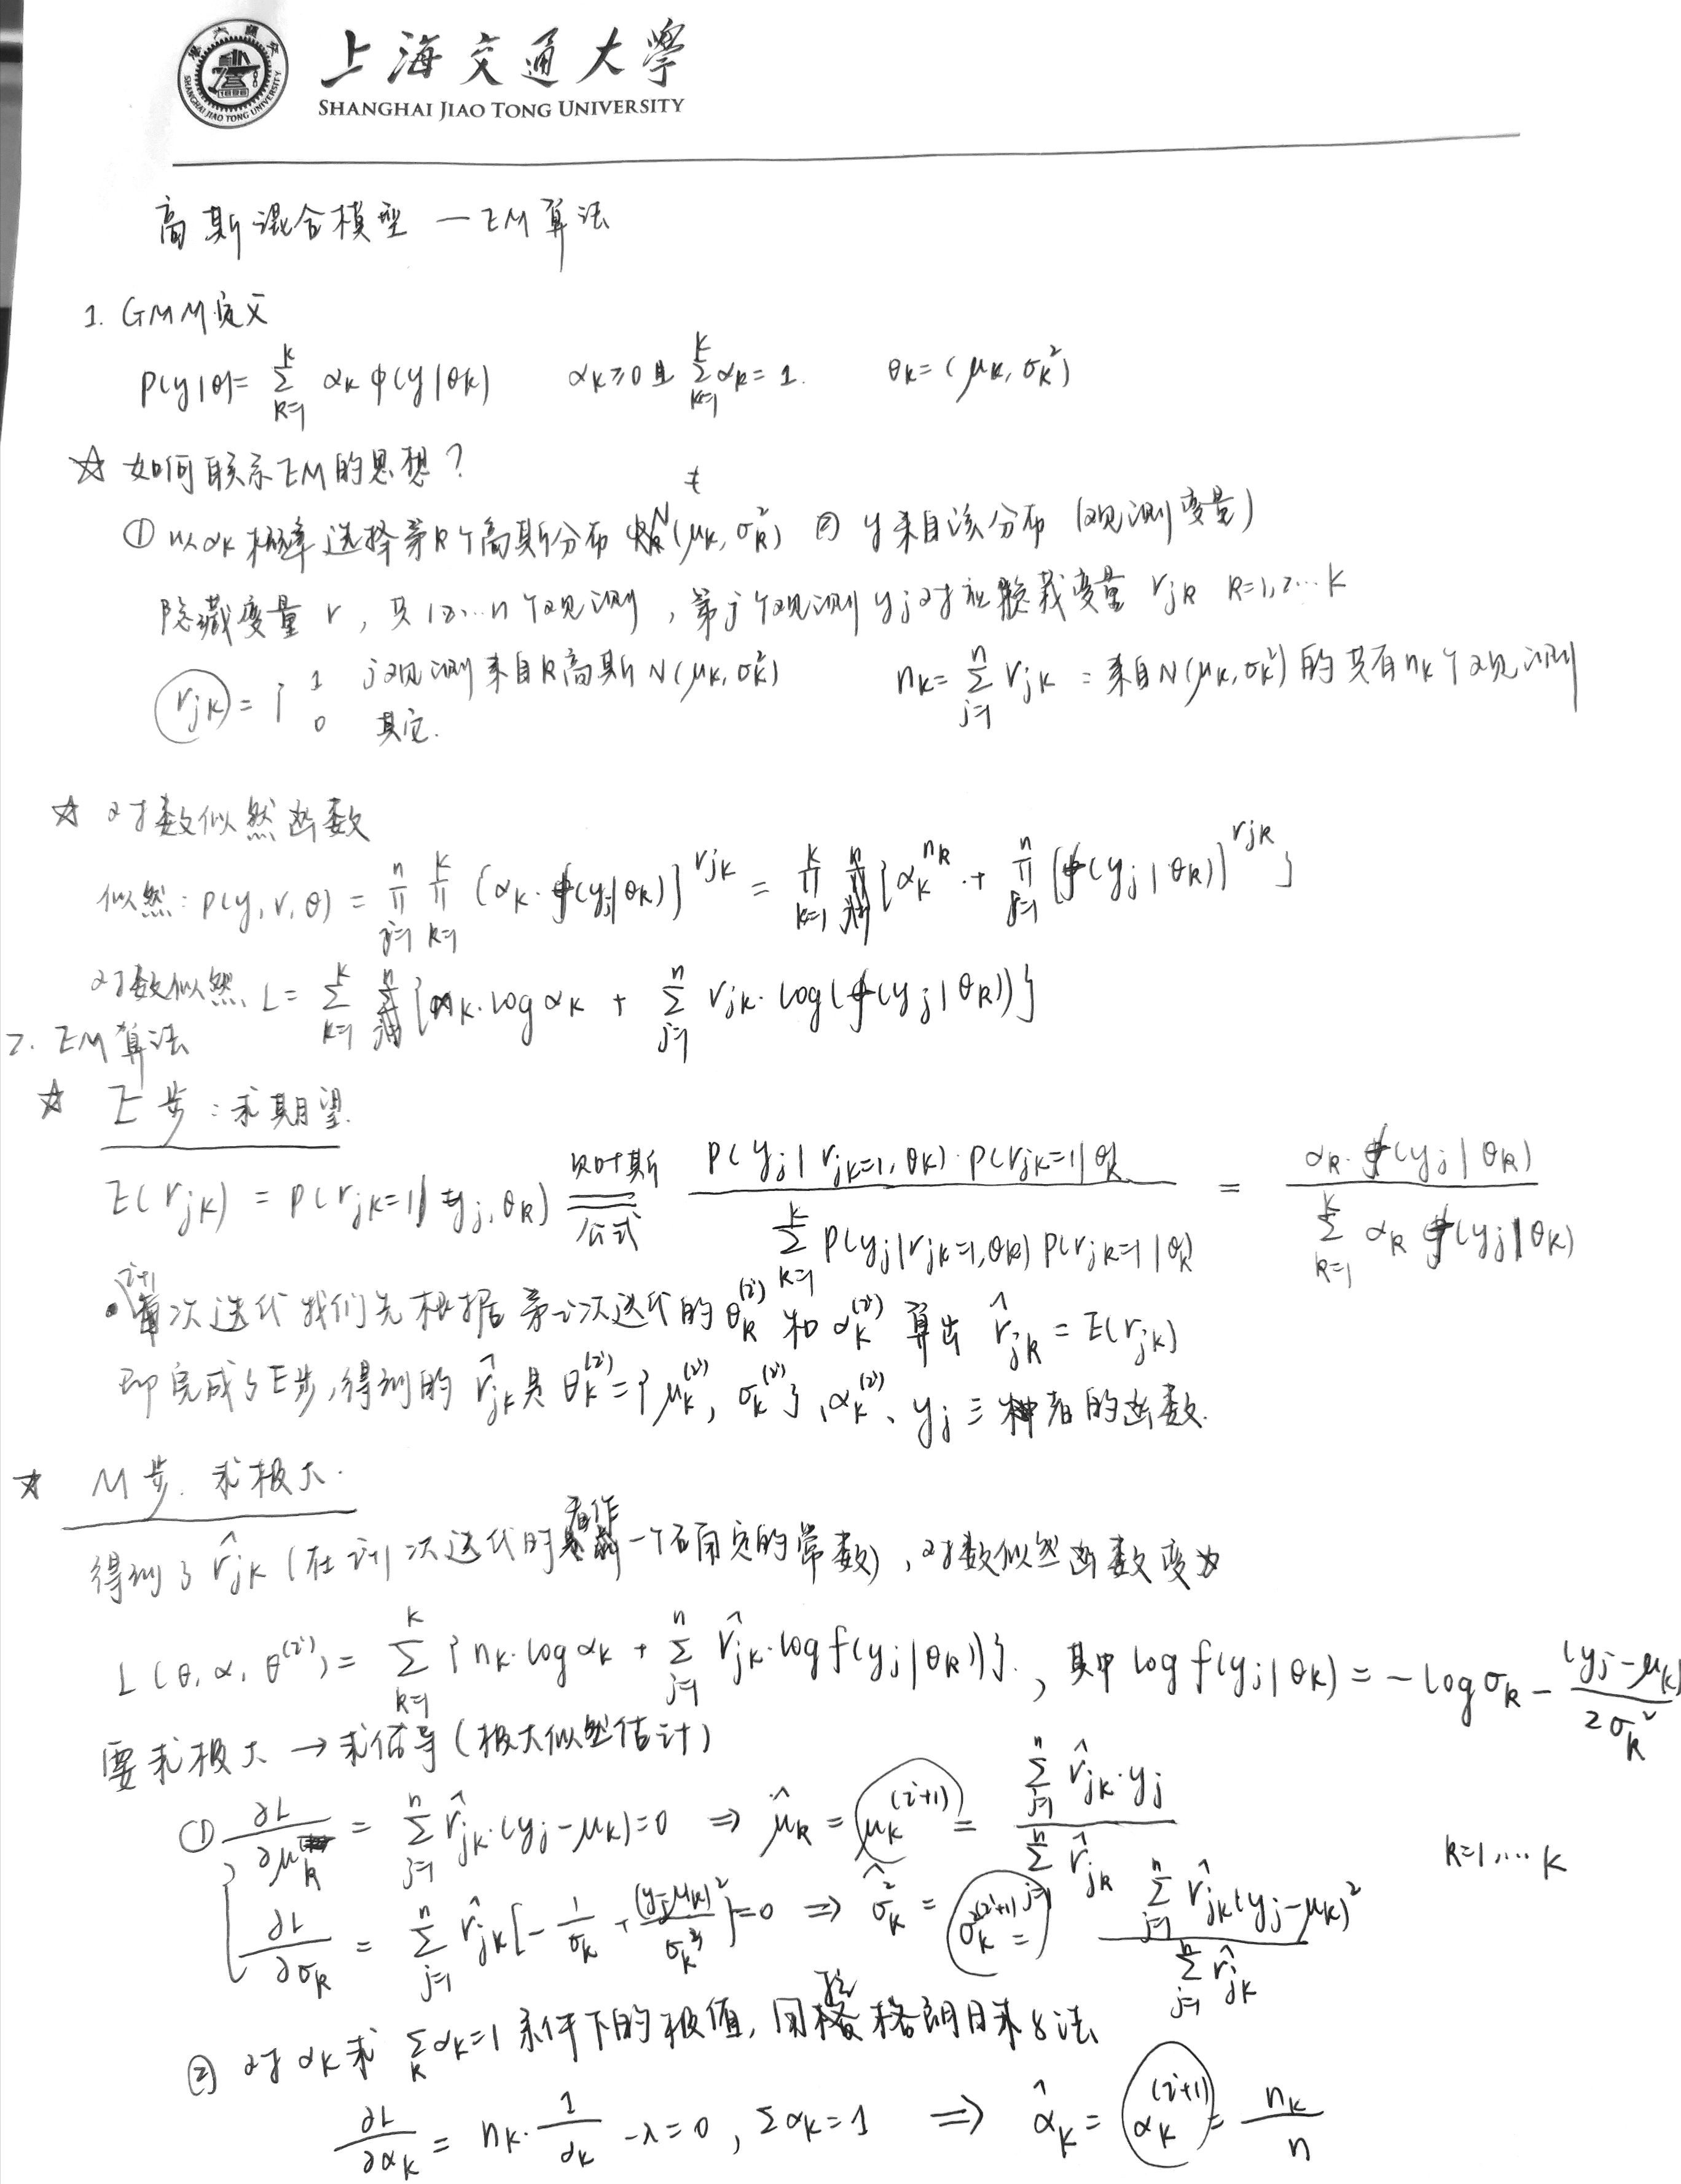 上海交通大學
SHANGHAI JIAO TONG UNIVERSITY
高斯混合模型 — EM算法
1. GMM定义
P(y|θ) = Σ_{k=1}^{K} α_k φ(y|θ_k)   α_k ≥ 0 且 Σ_{k=1}^{K} α_k = 1.   θ_k = (μ_k, σ_k²)
☆ 如何联系EM的思想?
① 以α_k概率选择第k个高斯分布 N(μ_k, σ_k²) ② y来自该分布 (观测变量)
隐藏变量 r, 共1 2...n个观测, 第j个观测 y_j 对应隐藏变量 r_jk k=1,2...K
r_jk = { 1 j观测来自k高斯 N(μ_k, σ_k²)   n_k = Σ_{j=1}^{n} r_jk = 来自N(μ_k, σ_k²)的共有n_k个观测
0 其它.
☆ 对数似然函数
似然: P(y, r, θ) = Π_{j=1}^{n} Π_{k=1}^{K} [α_k · f(y_j|θ_k)]^{r_jk} = Π_{k=1}^{K} {α_k^{n_k} · Π_{j=1}^{n} [f(y_j|θ_k)]^{r_jk}}
对数似然 L = Σ_{k=1}^{K} {n_k · log α_k + Σ_{j=1}^{n} r_jk · log(f(y_j|θ_k))}
2. EM算法
☆ E步: 求期望
E(r_jk) = P(r_jk=1|y_j, θ_k) 贝叶斯公式 = P(y_j|r_jk=1, θ_k) · P(r_jk=1|θ_k) / Σ_{k=1}^{K} P(y_j|r_jk=1, θ_k) P(r_jk=1|θ_k) = α_k · f(y_j|θ_k) / Σ_{k=1}^{K} α_k f(y_j|θ_k)
• i+1次迭代我们先根据第i次迭代的 θ_k^{(i)} 和 α_k^{(i)} 算出 r̂_jk = E(r_jk)
即完成了E步, 得到的 r̂_jk 是 θ_k^{(i)} = {μ_k^{(i)}, σ_k^{(i)}}、α_k^{(i)}、y_j 三者的函数.
☆ M步. 求极大.
得到了 r̂_jk (在i+1次迭代时看作一个确定的常数), 对数似然函数变为
L(θ, α, θ^{(i)}) = Σ_{k=1}^{K} {n_k · log α_k + Σ_{j=1}^{n} r̂_jk · log f(y_j|θ_k))}. , 其中 log f(y_j|θ_k) = -log σ_k - (y_j - μ_k) / 2σ_k²
要求极大 → 求偏导 (极大似然估计)
① ∂L/∂μ_k = Σ_{j=1}^{n} r̂_jk · (y_j - μ_k) = 0 ⇒ μ̂_k = μ_k^{(i+1)} = Σ_{j=1}^{n} r̂_jk · y_j / Σ_{j=1}^{n} r̂_jk   k=1,...K
∂L/∂σ_k = Σ_{j=1}^{n} r̂_jk [-1/σ_k + (y_j - μ_k)²/σ_k³] = 0 ⇒ σ̂_k² = σ_k^{2(i+1)} = Σ_{j=1}^{n} r̂_jk (y_j - μ_k)² / Σ_{j=1}^{n} r̂_jk
② 对α_k求 Σ_k α_k = 1 条件下的极值, 用拉格朗日乘子法
∂L/∂α_k = n_k · 1/α_k - λ = 0, Σα_k = 1 ⇒ α̂_k = α_k^{(i+1)} = n_k / n